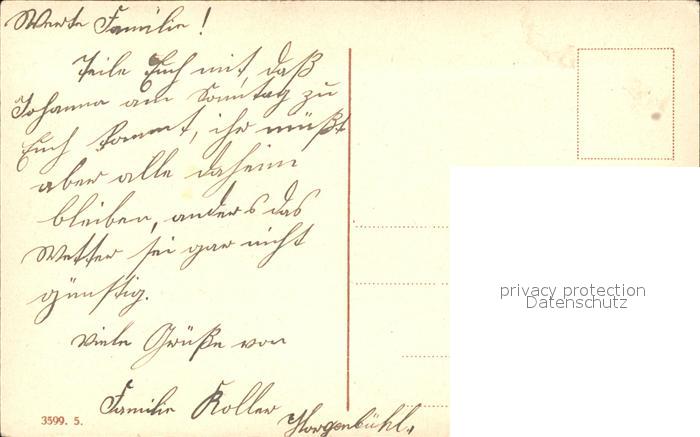 Werte Familie!
Teile Euch mit, daß
Johanna am Sonntag zu
Euch kommt, ihr müßt
aber alle daheim
bleiben, anders das
Wetter sei gar nicht
günstig.
Viele Grüße von
Familie Koller
Horgenbühl.
3599. 5.
privacy protection
Datenschutz